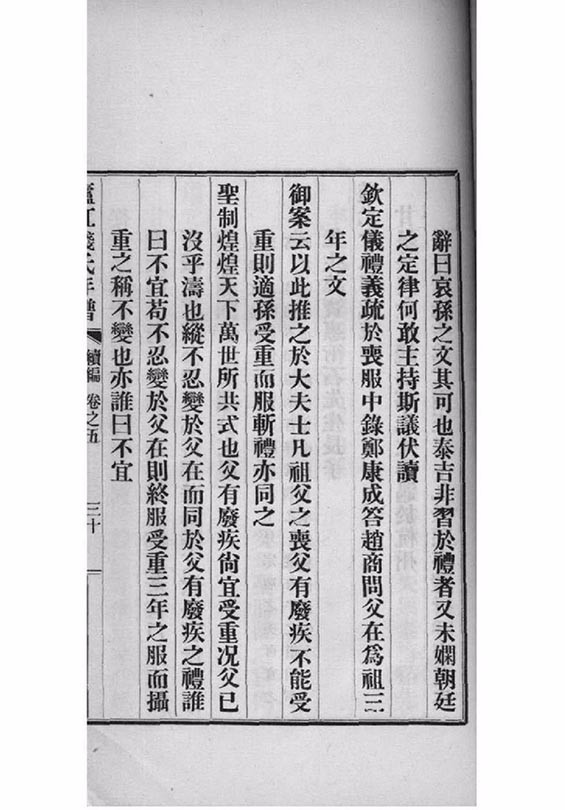 辭曰哀孫之文其可也泰吉非習於禮者又未嫻朝廷
之定律何敢主持斯議伏讀
欽定儀禮義疏於喪服中錄鄭康成答趙商問父在爲祖三
年之文
御案云以此推之於大夫士凡祖父之喪父有廢疾不能受
重則適孫受重而服斬禮亦同之
聖制煌煌天下萬世所共式也父有廢疾尙宜受重况父已
沒乎濤也縱不忍變於父在而同於父有廢疾之禮誰
曰不宜苟不忍變於父在則終服受重三年之服而攝
重之稱不變也亦誰曰不宜
廬江錢氏年譜 續編 卷之五 三十